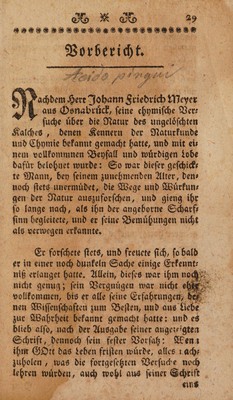 29
Vorbericht.
Acido pingui
Nachdem Herr Johann Friedrich Meyer
aus Osnabrück, seine chymische Ver-
suche über die Natur des ungelöschten
Kalches, denen Kennern der Naturkunde
und Chymie bekannt gemacht hatte, und mit ei-
nem vollkommnen Beyfall und würdigen Lobe
dafür belohnet wurde: So war dieser geschick-
te Mann, bey seinem zunehmenden Alter, den-
noch stets unermüdet, die Wege und Würkun-
gen der Natur auszuforschen, und gieng ihr
so lange nach, als ihn der angeborne Scharf-
sinn begleitete, und er seine Bemühungen nicht
als verwegen erkannte.
Er forschete stets, und freuete sich, so bald
er in einer noch dunkeln Sache einige Erkennt-
niß erlanget hatte. Allein, dieses war ihm noch
nicht genug; sein Vergnügen war nicht ehe
vollkommen, bis er alle seine Erfahrungen, de-
nen Wissenschaften zum Besten, und aus Liebe
zur Wahrheit bekannt gemacht hatte: und es
blieb also, nach der Ausgabe seiner angezeigten
Schrift, dennoch sein fester Vorsatz: Wenn
ihm GOtt das Leben fristen würde, alles nach-
zuholen, was die fortgesetzten Versuche noch
lehren würden, auch wohl aus seiner Schrift
eins